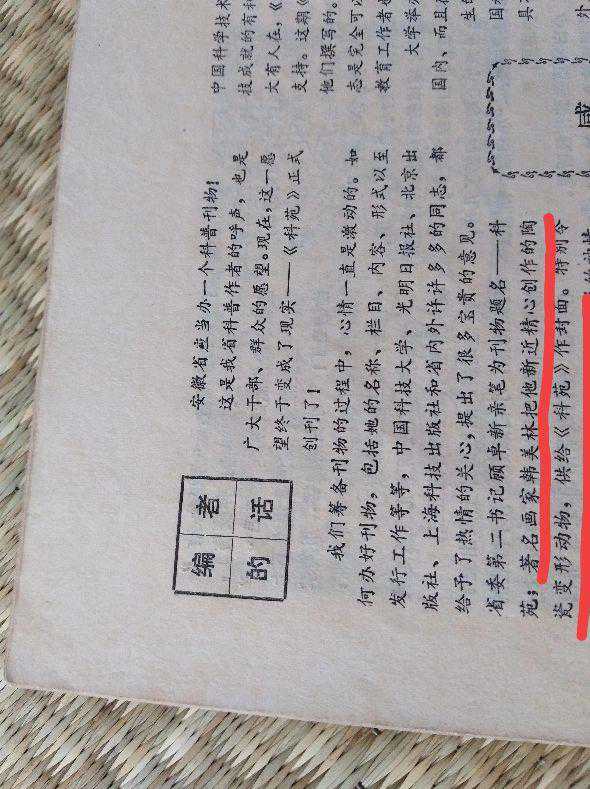 编者
的话
安徽省应当办一个科普刊物!
这是我省科普作者的呼声,也是
广大干部、群众的愿望。现在,这一愿
望终于变成了现实——《科苑》正式
创刊了!
我们筹备刊物的过程中,心情一直是激动的。如
何办好刊物,包括她的名称、栏目、内容、形式以至
发行工作等等,中国科技大学、光明日报社、北京出
版社、上海科技出版社和省内外许许多多的同志,都
给予了热情的关心,提出了很多宝贵的意见。
省委第二书记顾卓新亲笔为刊物题名——科
苑;著名画家韩美林把他新近精心创作的陶
瓷变形动物,供给《科苑》作封面。特别令
中国科学技术
技成就的有
大有人在,《
支持。这期《
他们撰写的。
志是完全可
教育工作者
大学举办
国内、而且
生的
国
具
外
感